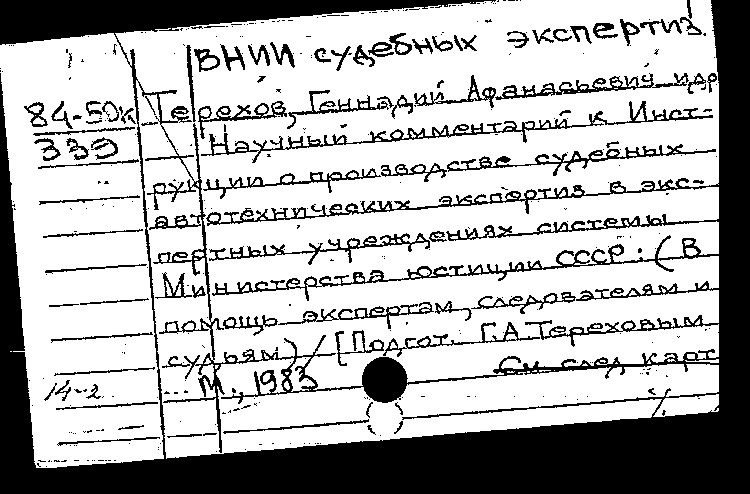 ВНИИ судебных экспертиз.
84-50к Терехов, Геннадий Афанасьевич и др
339 Научный комментарий к Инст-
рукции о производстве судебных
автотехнических экспертиз в экс-
пертных учреждениях системы
Министерства юстиции СССР: (В
помощь экспертам, следователям и
судьям) / [Подгот. Г.А.Тереховым
... М., 1983 См след карт
14-2